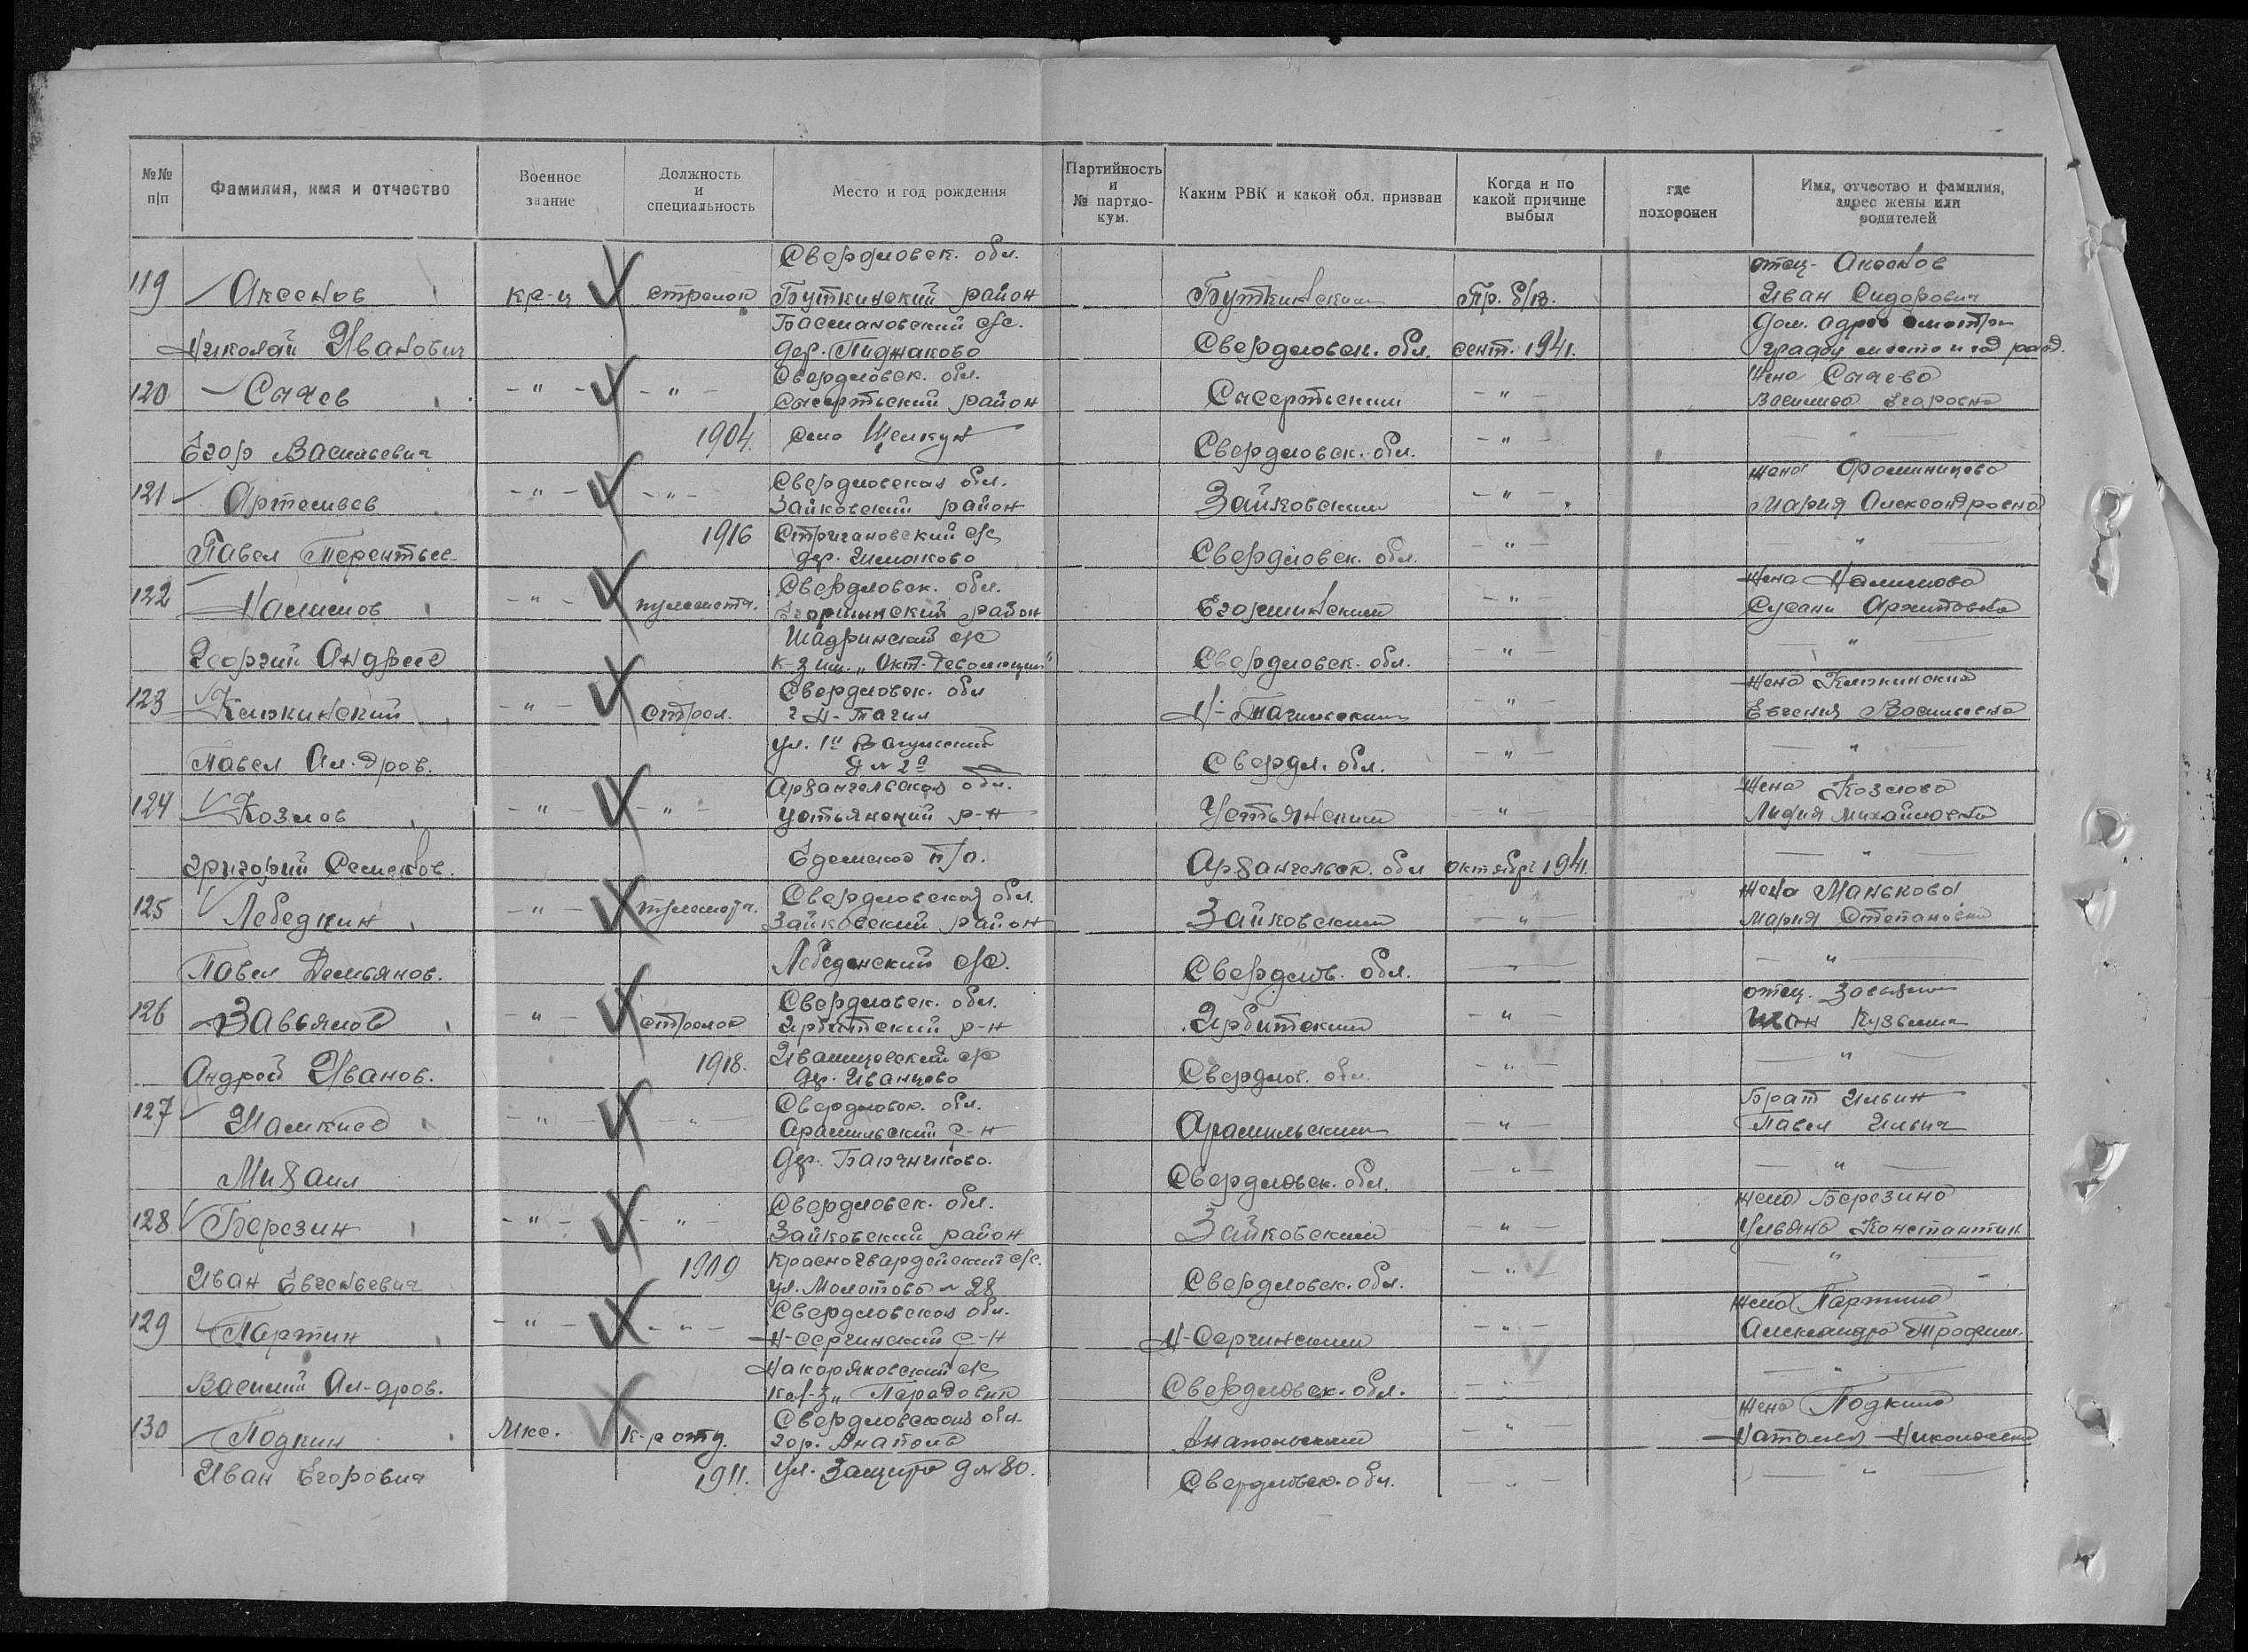 №№ п/п
Фамилия, имя и отчество
Военное звание
Должность и специальность
Место и год рождения
Партийность и № партдокум.
Каким РВК и какой обл. призван
Когда и по какой причине выбыл
где похоронен
Имя, отчество и фамилия, адрес жены или родителей
Свердловск. обл. отец - Аксенов
119 Аксенов кр-ц стрелок Буткинский район Буткинским Пр. б/в. Иван Сидорович
Басмановский с/с. Дом. адрес смотри
Николай Иванович дер. Пиджаково Свердловск. обл. сент. 1941. графу место и год рожд.
Свердловск. обл. Жена Сычева
120 Сычев -"- -"- Сысертьский район Сысертьским -"- Василиса Егоровна
1904. село Щелкун -"- -"-
Егор Васильевич Свердловск. обл.
Свердловская обл. жена Фоминцева
121 Артемьев -"- -"- Зайковский район Зайковским -"- Мария Александровна
1916 Стригановский с/с
Павел Терентьев дер. Свердловск. обл. -"- -"-
Свердловск. обл. Жена Налимова
122 Налимов -"- пулеметч. Егоршинский район Егоршинским -"- Сусанн Архиповна
Шадринский с/с -"-
Георгий Андреев к-з им. „Окт. Революции" Свердловск. обл. -"-
Свердловск. обл Жена
123 -"- Стрел. г Н-Тагил Н-Тагильским -"- Евгения Васильевна
ул. -"-
Павел Ал-дров. Д № 2а Свердл. обл. -"-
Архангельская обл. Жена Козлова
124 Козлов -"- -"- Устьянский р-н Устьянским -"- Лидия Михайловна
Едемское п/о. -"-
Григорий Семенов. Архангельск. обл октябрь 1941.
Свердловская обл. жена Манькова
125 Лебедкин -"- пулеметч. Зайковский район Зайковским -"- Мария Степановна
Лебедкский с/с. -"-
Павел Демьянов. Свердлов. обл. -"-
Свердловск. обл. отец. Завьялов
126 Завьялов -"- стрелок Ирбитский р-н Ирбитским -"- Иван Кузьмич
1918. с/с -"-
Андрей Иванов. др. Иванцево Свердлов. обл. -"-
Свердловск. обл. Брат Ильин
127 -"- -"- Арамильский р-н Арамильским -"- Павел Ильич
др. -"-
Михаил Свердловск. обл. -"-
Свердловск. обл. жена Березина
128 Березин -"- -"- Зайковский район Зайковским -"- Ульяна Константин.
1909 Красногвардейский с/с. -"-
Иван Евгеньевич ул. Молотова № 28 Свердловск. обл. -"-
Свердловская обл. жена Партина
129 Партин -"- -"- Н-Сергинский р-н Н-Сергинским -"- Александра Трофим.
Накоряковский с/с -"-
Василий Ал-дров. Кол-з „ Свердловск. обл. -"-
Свердловская обл. жена Подкина
130 Подкин Мкс. К-р отд. гор. -"- Наталия Николаевна
Иван Егорович 1911. ул. д № 80. Свердловск. обл. -"- -"-